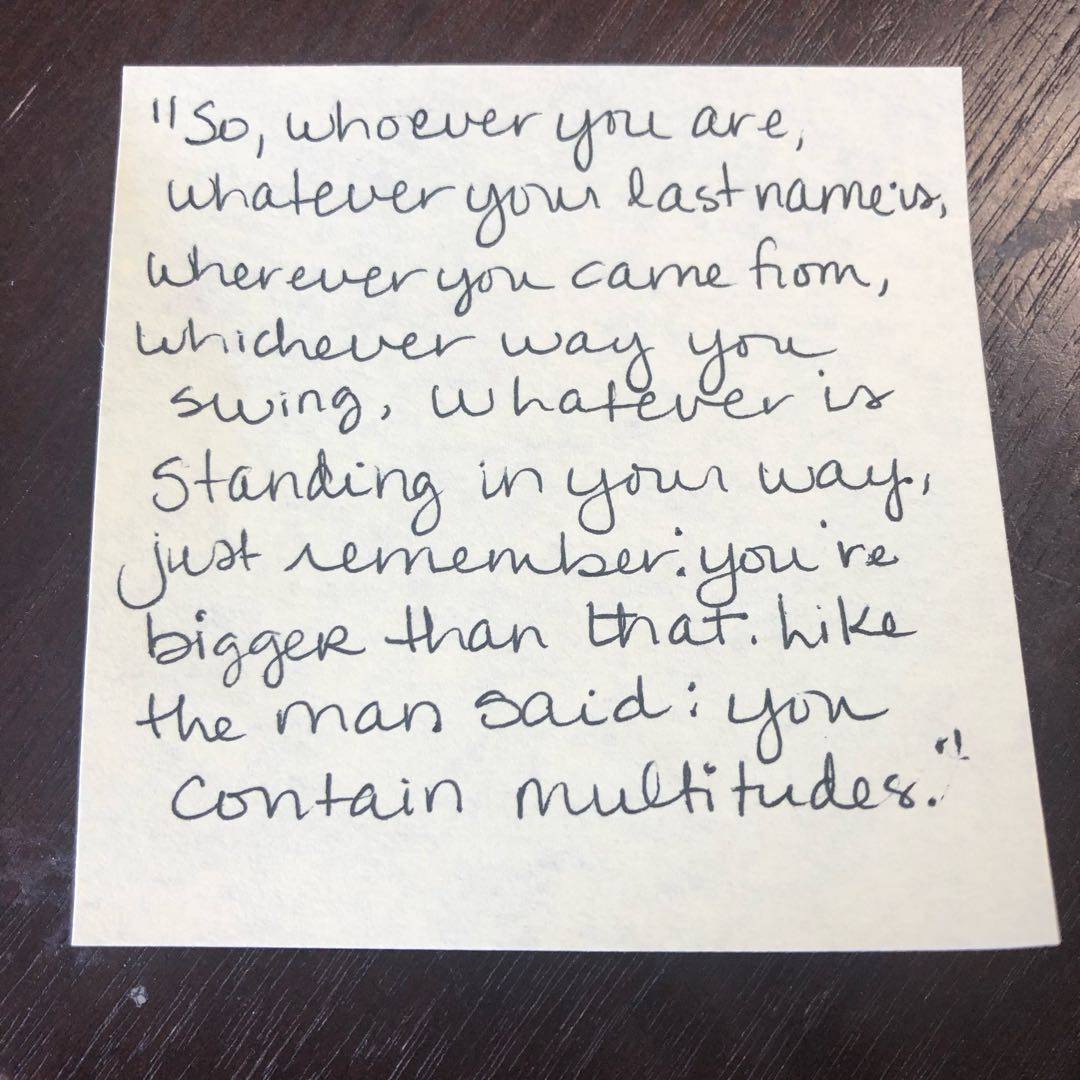 "So, whoever you are,
whatever your last name is,
wherever you came from,
whichever way you
swing, whatever is
standing in your way,
just remember: you're
bigger than that. Like
the man said: you
contain multitudes."